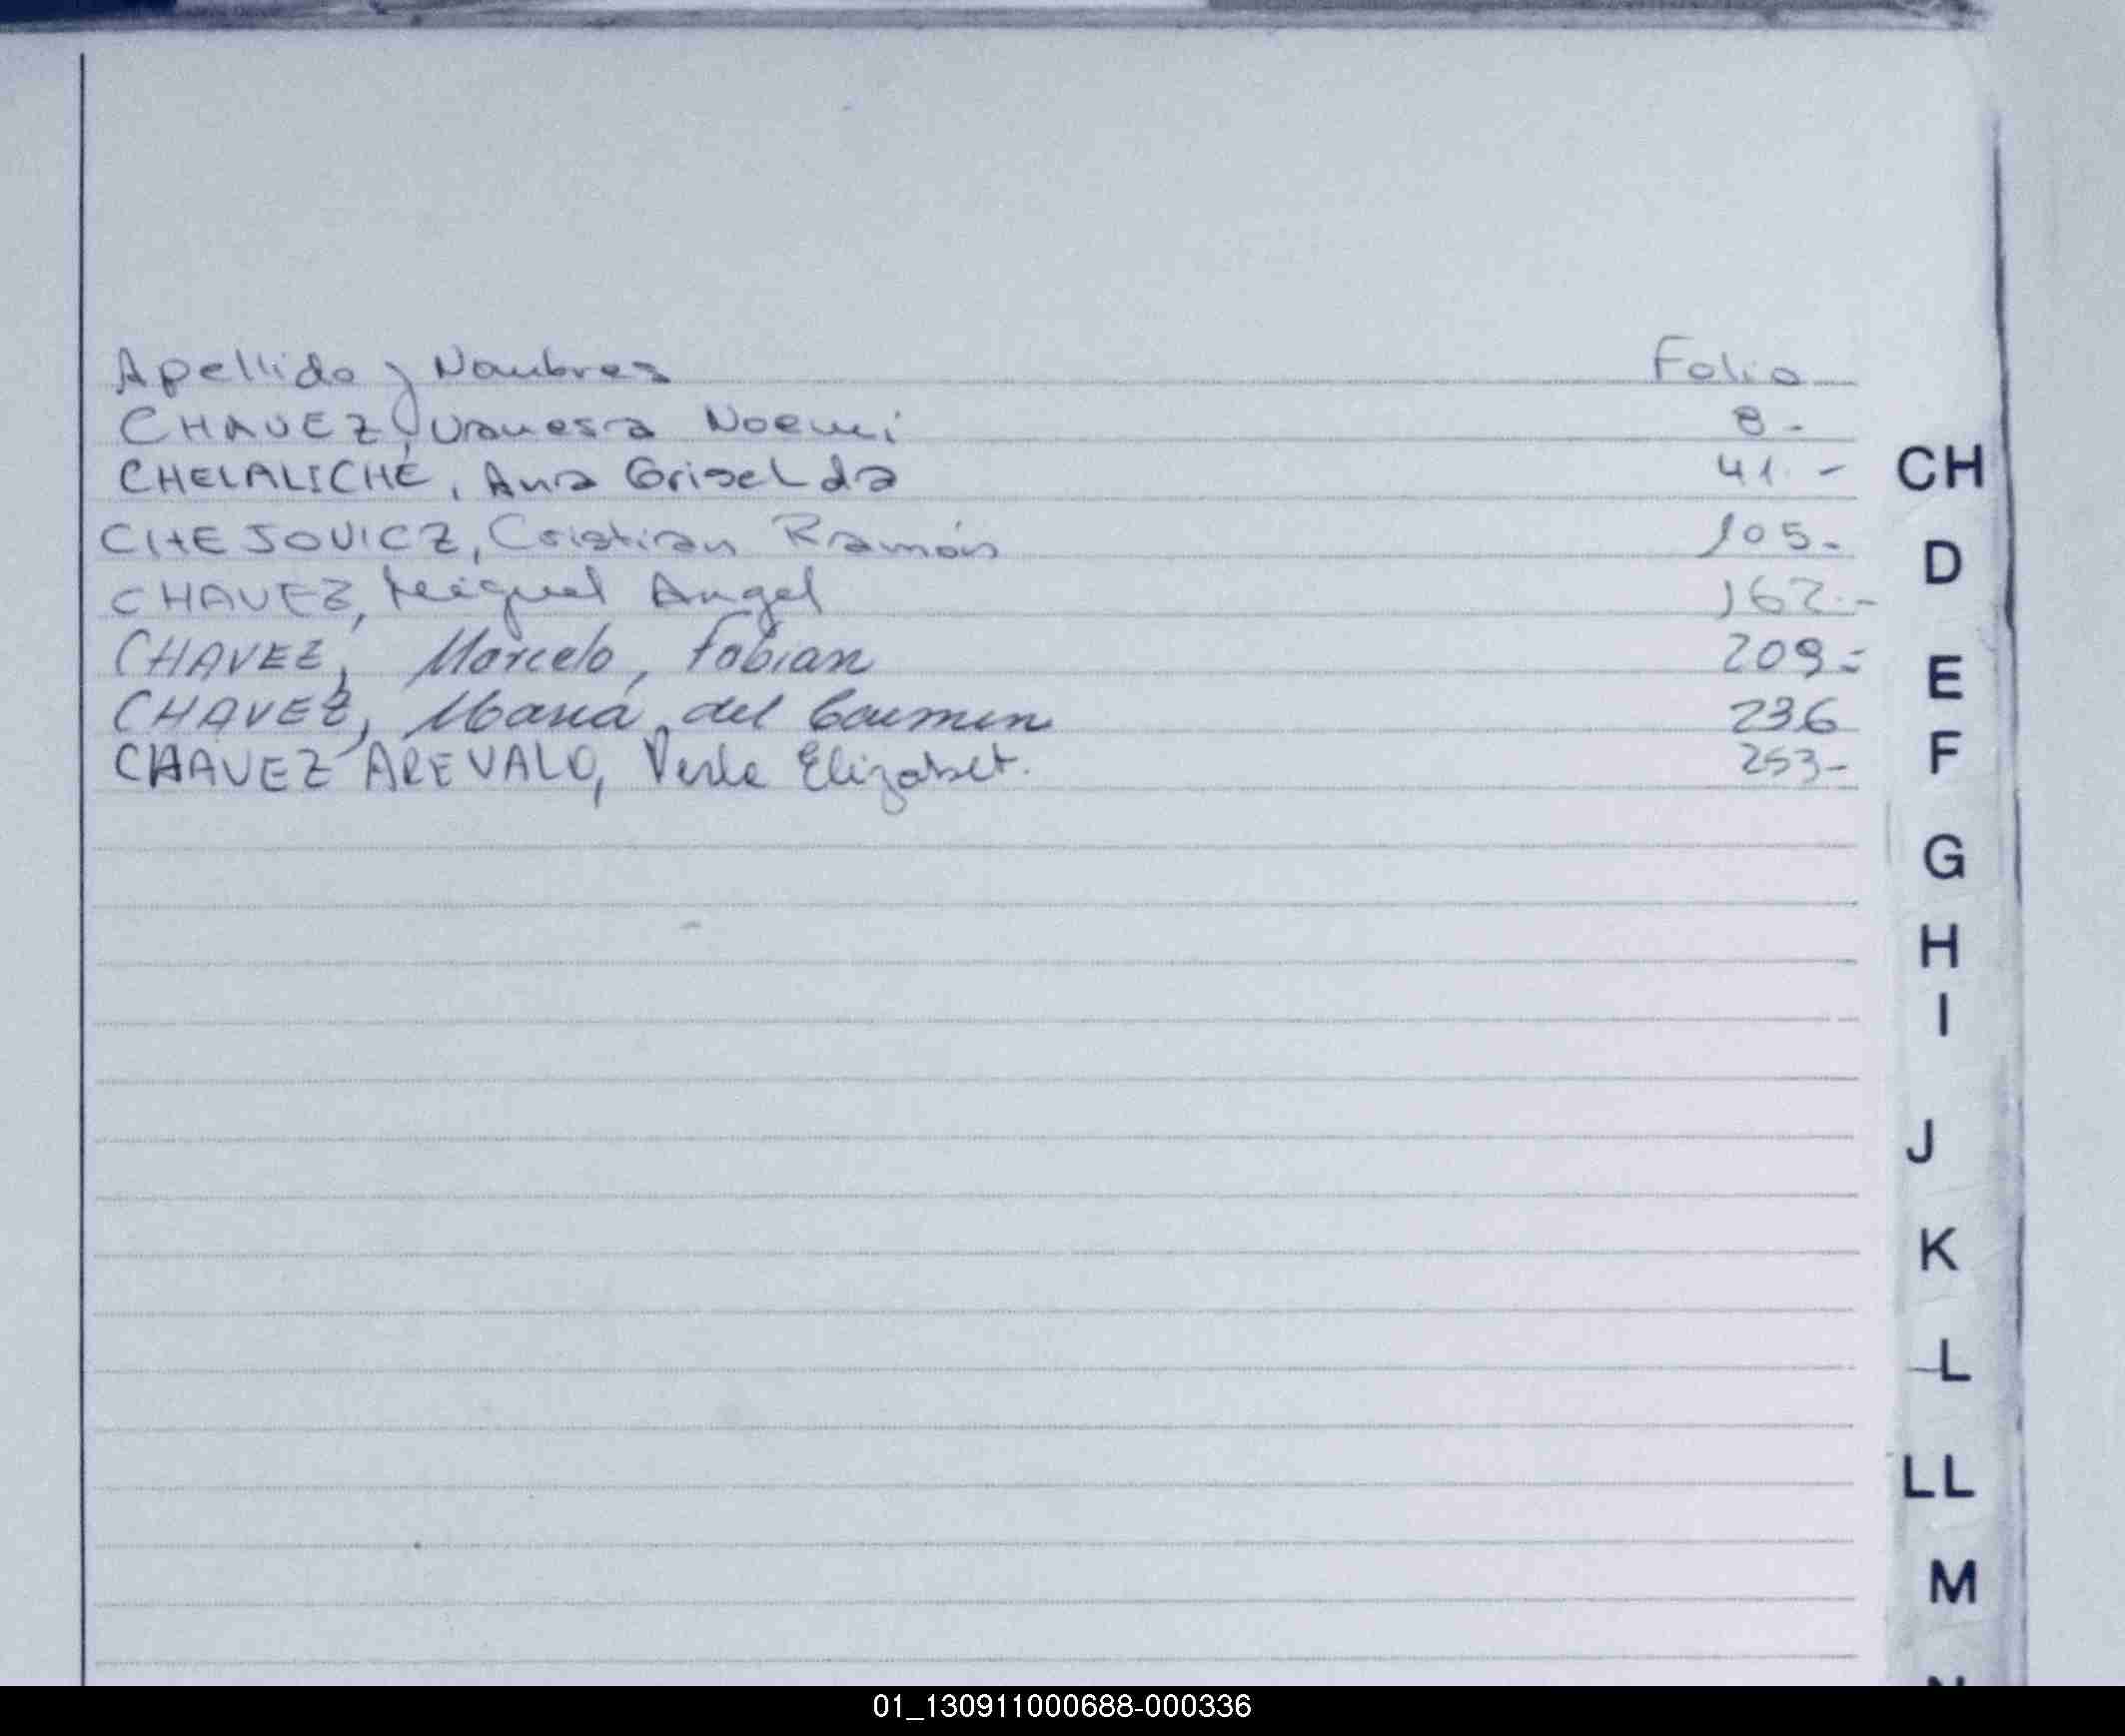 Apellido y Nombres Folio
CHAVEZ, Vanessa Noemi 8-
CHELALICHÉ, Ana Griselda 41.-
CHESOVICZ, Cristian Ramón 105-
CHAVEZ, Miguel Angel 162.-
CHAVEZ, Marcelo, Fabian 209.-
CHAVEZ, María, del Carmen 236
CHAVEZ AREVALO, Perla Elizabet. 253-
CH
D
E
F
G
H
I
J
K
L
LL
M
01_130911000688-000336